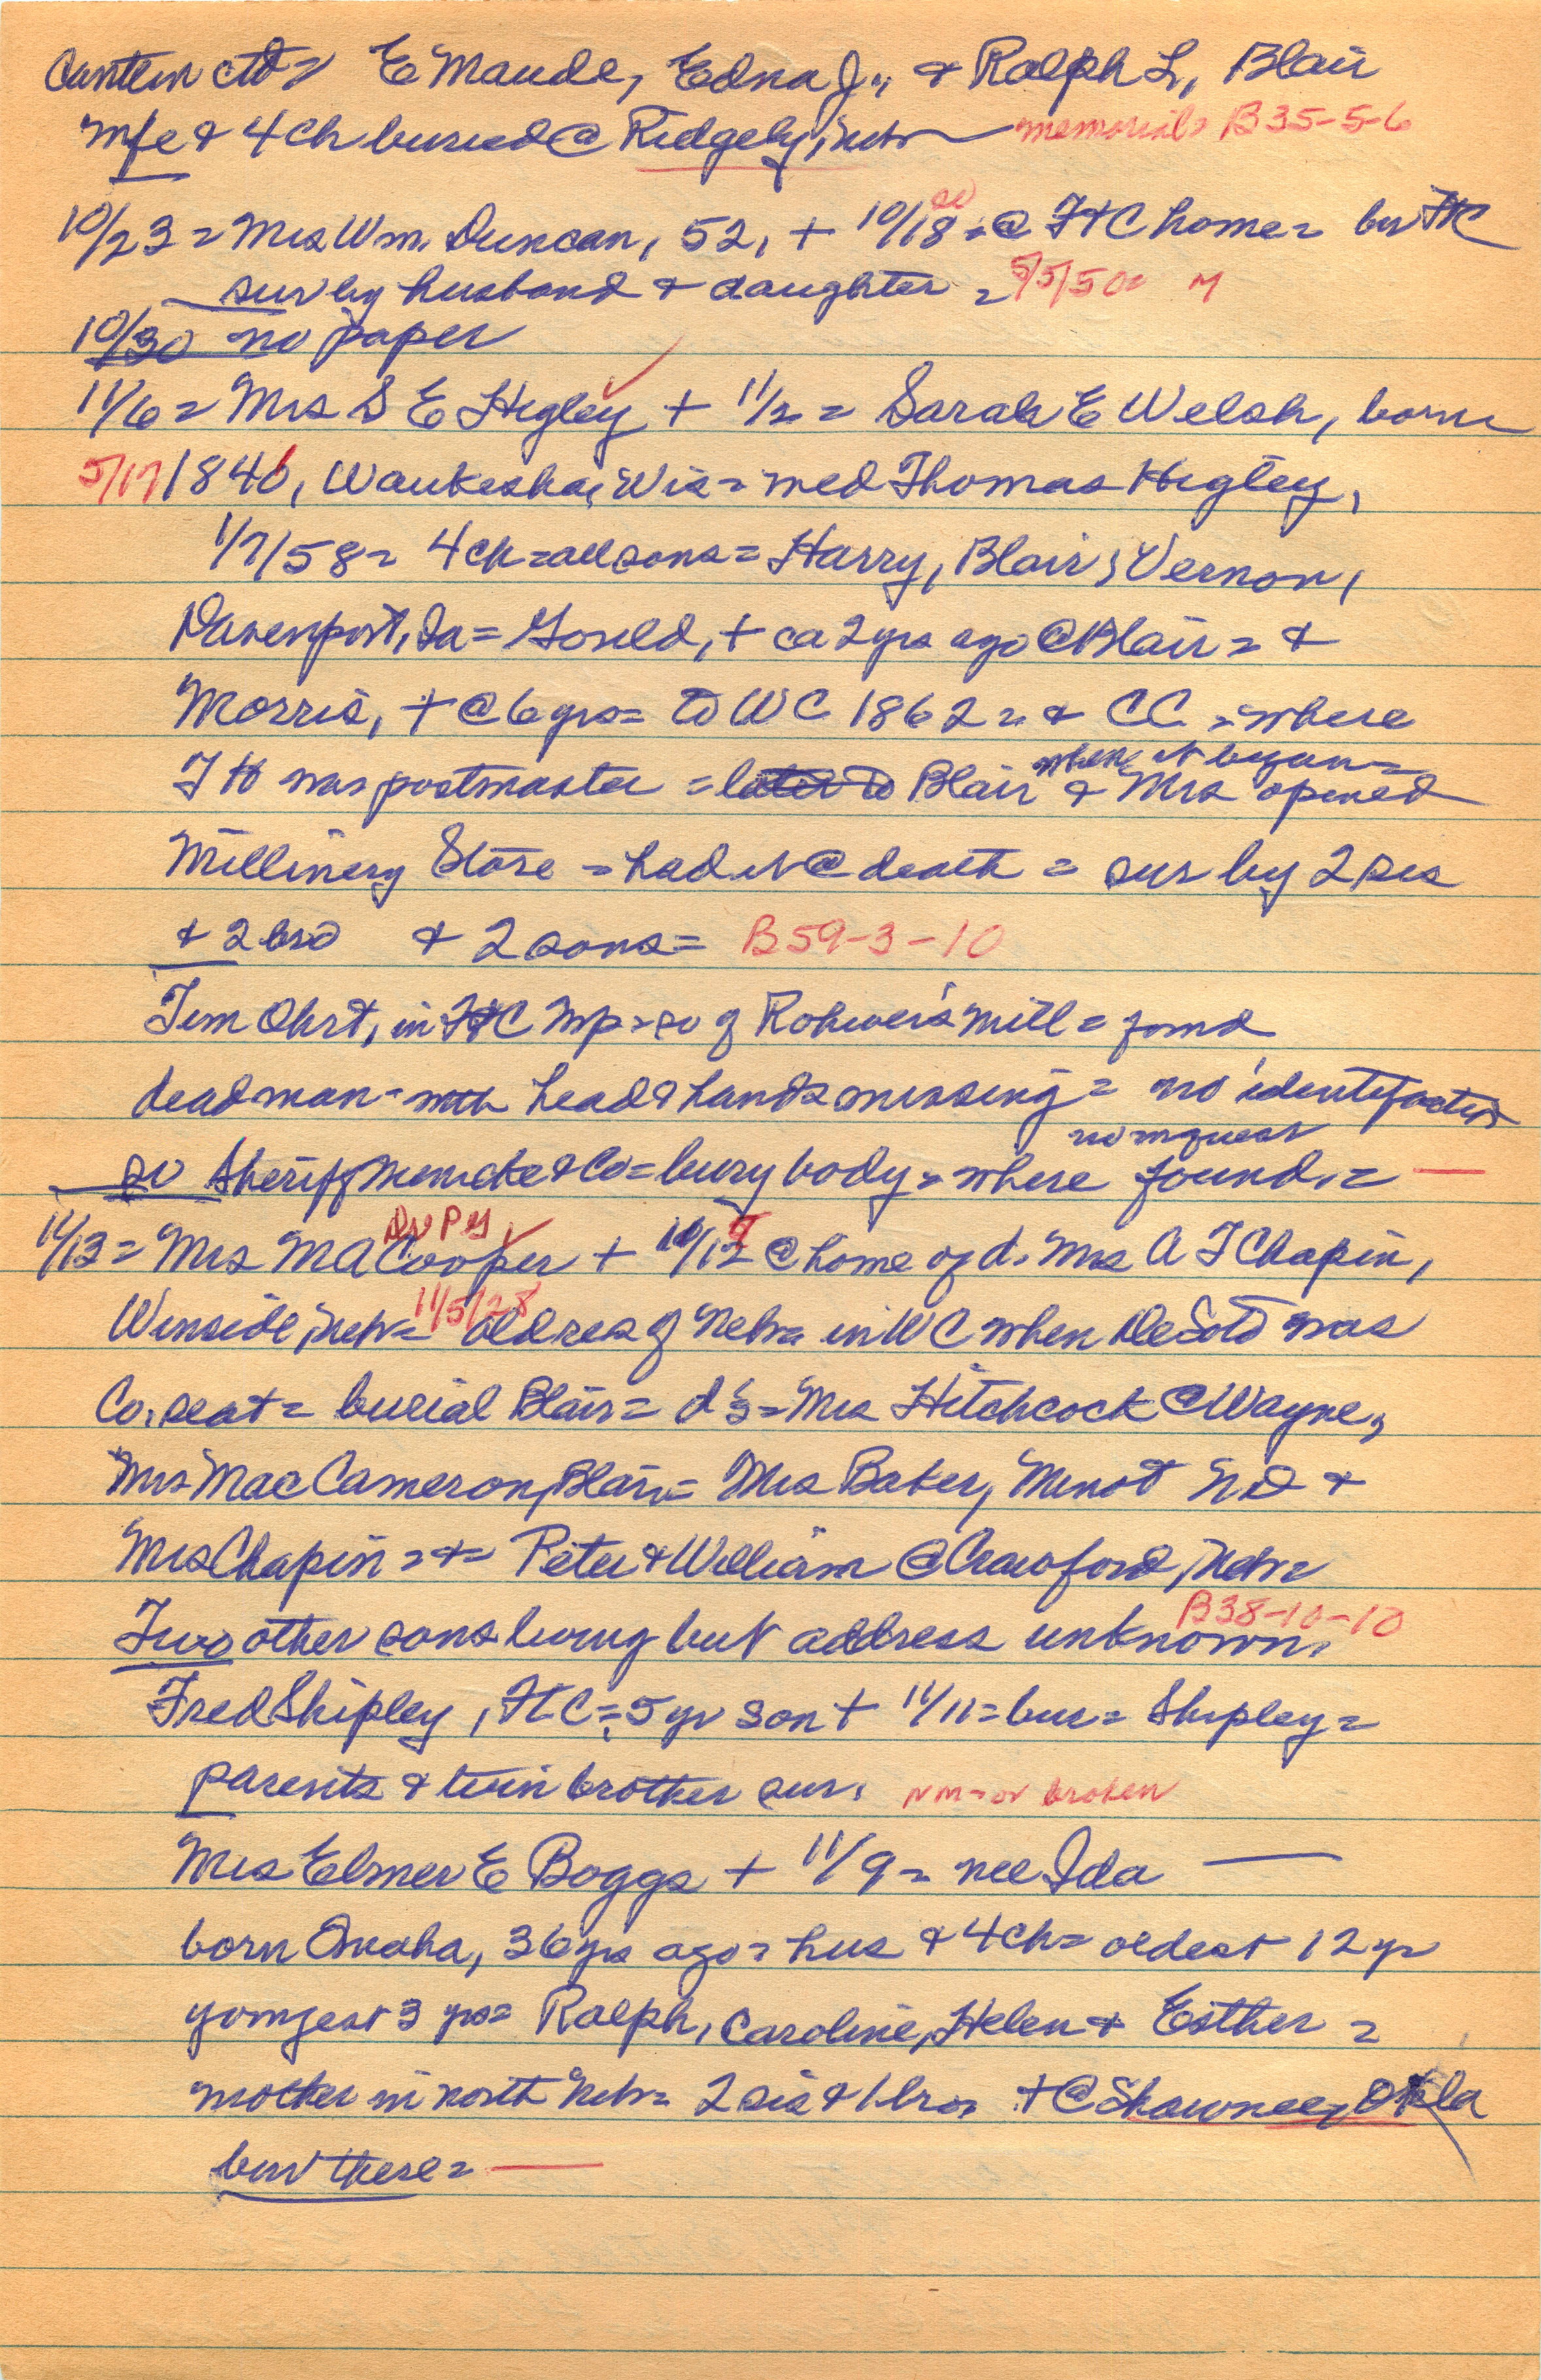 Cantlin ctd = E Maude, Edna J., & Ralph L, Blair
mfe & 4 ch buried @ Ridgely, Neb memorial = B 35-5-6
10/23 = Mrs Wm. Duncan, 52, + 10/18 = @ FtC home = bur FtC
sur by husband & daughter = 5/5/50 = M
10/30 no paper
11/6 = Mrs S E Higley + 11/2 = Sarah E Welsh, born
5/17 1840, Waukesha, Wis = med Thomas Higley,
1/7/58 = 4 ch = all sons = Harry, Blair; Vernon,
Davenport, Ia = Gould, + ca 2 yrs ago @ Blair = &
Morris, + @ 6 yrs = to WC 1862 = & CC = where
T H was postmaster = later to Blair when it began = & Mrs opened
Millinery Store = had it @ death = sur by 2 sis
& 2 bro & 2 sons = B 59-3-10
Tem Ohrt, in FtC mp = so of Rohwer's mill = found
dead man - with head & hands missing = no identification
so Sheriff Mencke & Co = bury body = where found = no inquest
11/13 = Mrs M A Cooper + 10/12 @ home of d. Mrs A T Chapin,
Winside, Neb = 11/5/28 old res of Neb = in WC when DeSoto was
Co. seat = burial Blair = d's = Mrs Hitchcock @ Wayne,
Mrs Mae Cameron, Blair = Mrs Baker, Minot ND &
Mrs Chapin = & = Peter & William @ Crawford, Neb =
Two other sons living but address unknown. B 38-10-10
Fred Shipley, FtC = 5 yr son + 11/11 = bur = Shipley =
parents & twin brother sur. nm - or broken
Mrs Elmer E Boggs + 11/9 = nee Ida —
born Omaha, 36 yrs ago = hus & 4 ch = oldest 12 yr
youngest 3 yrs = Ralph, Caroline, Helen & Esther =
mother in north Neb = 2 sis & 1 bro. + @ Shawnee, Okla
bur there =